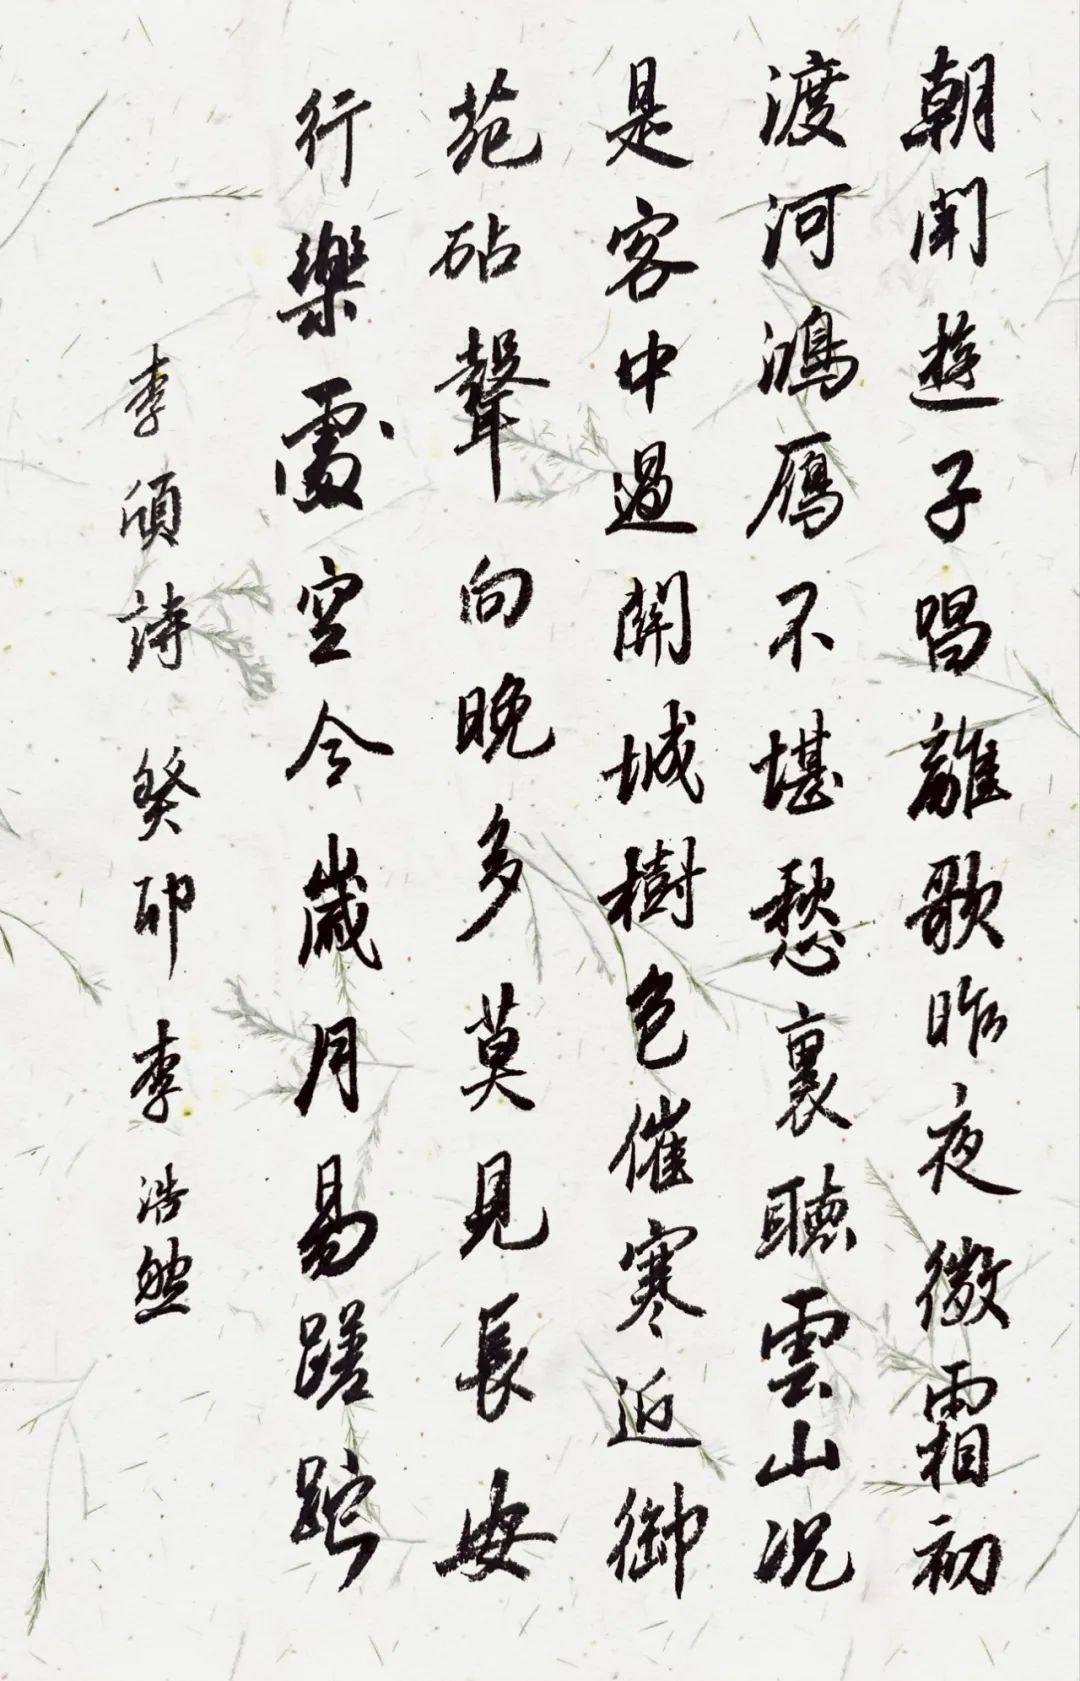 朝聞遊子唱離歌昨夜微霜初
渡河鴻鴈不堪愁裏聽雲山況
是客中過關城樹色催寒近御
苑砧聲向晚多莫見長安
行樂處空令歲月易蹉跎
李頎詩 癸卯 李浩然